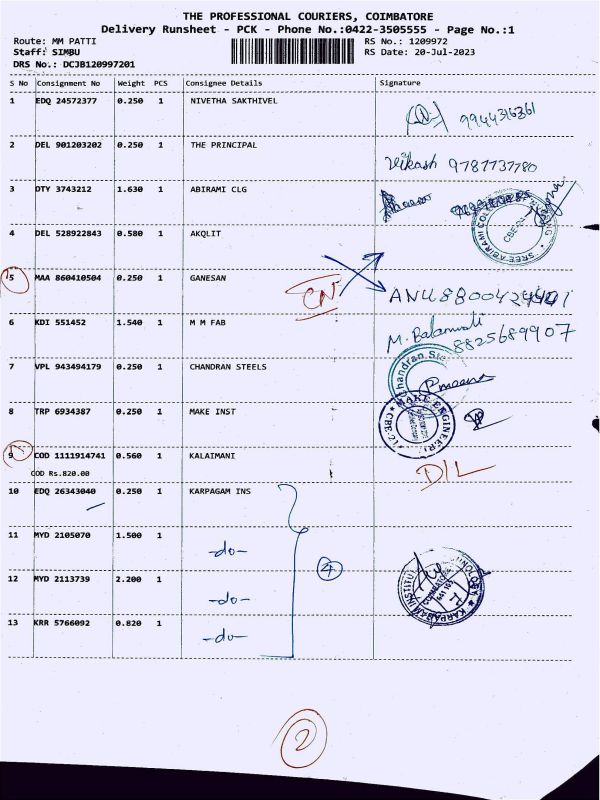 THE PROFESSIONAL COURIERS, COIMBATORE
Delivery Runsheet - PCK - Phone No.:0422-3505555 - Page No.:1
Route: MM PATTI RS No.: 1209972
Staff: SIMBU RS Date: 20-Jul-2023
DRS No.: DCJB120997201
S No Consignment No Weight PCS Consignee Details Signature
1 EDQ 24572377 0.250 1 NIVETHA SAKTHIVEL
9944316361
2 DEL 901203202 0.250 1 THE PRINCIPAL
Vikash 9787737780
3 DTY 3743212 1.630 1 ABIRAMI CLG
4 DEL 528922843 0.580 1 AKQLIT
5 MAA 860410504 0.250 1 GANESAN
CN
ANU
6 KDI 551452 1.540 1 M M FAB
8825689907
7 VPL 943494179 0.250 1 CHANDRAN STEELS
8 TRP 6934387 0.250 1 MAKE INST
MAKE ENGINEERI
9 COD 1111914741 0.560 1 KALAIMANI
COD Rs.820.00
D/L
10 EDQ 26343040 0.250 1 KARPAGAM INS
11 MYD 2105070 1.500 1 -do-
4
12 MYD 2113739 2.200 1 -do-
13 KRR 5766092 0.820 1 -do-
2